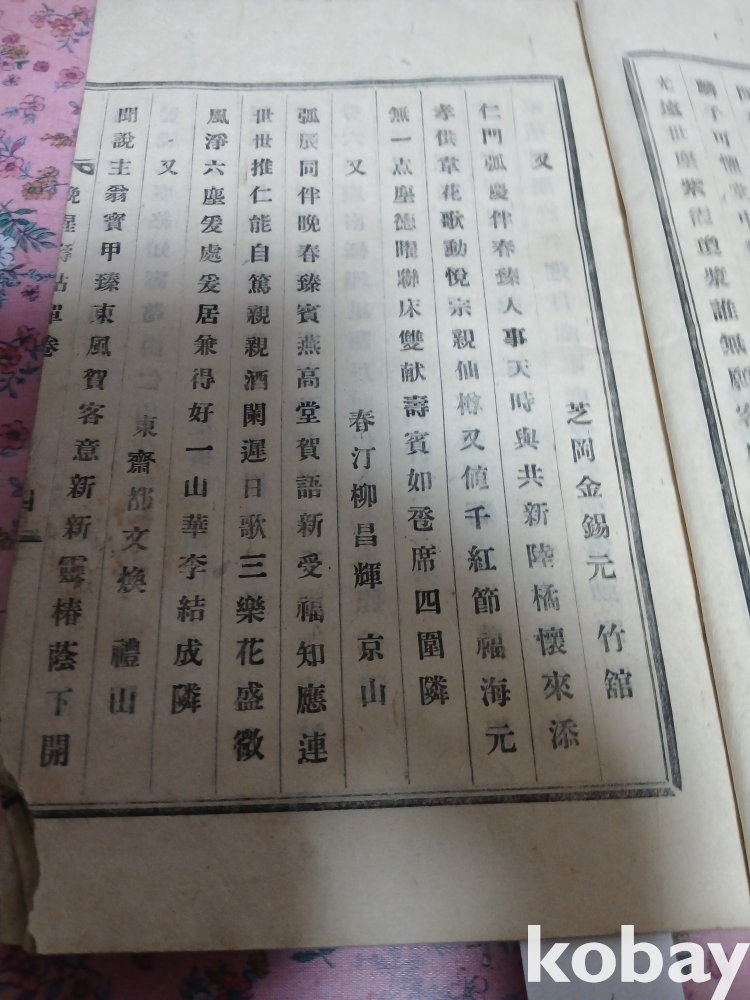 光遠世塵紫霞瓊漿誰無願
又 芝岡金錫元 竹館
仁門弧慶伴春臻人事天時與共新陸橘懷來添
孝供萱花歌動悅宗親仙樽又値千紅節福海元
無一点塵德曜聯床雙献壽賓如卺席四圍隣
又 春汀柳昌輝 京山
弧辰同伴晩春臻賓燕高堂賀語新受福知應連
世世推仁能自篤親親酒闌遲日歌三樂花盛徵
風淨六塵爰處爰居兼得好一山華李結成隣
又 東齋都文煥 禮山
聞說主翁寶甲臻東風賀客意新新靈椿蔭下開
晩星壽帖單卷 四
kobay